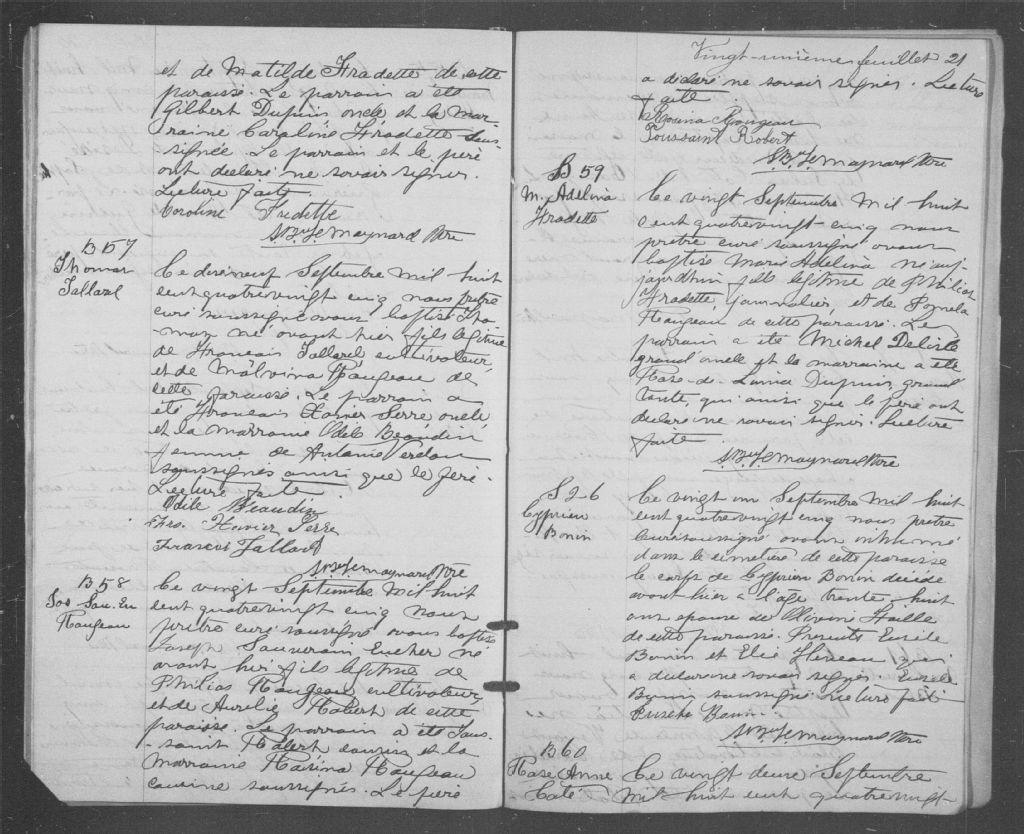 et de Matilde Fradette de cette
paraisse. Le parrain a été
Gilbert Dupuis oncle et la mar
raine Caroline Fradette sous-
signée. Le parrain et le père
ont declaré ne savoir signer.
Lecture faite.
Caroline Fredette
Lemaynard Ptre
B 57
Thomas
Tallard
Ce diseneuf Septembre mil huit
cent quatrevingt cinq nous prêtre
curé soussigné avons baptisé Tho
mas né avant hier fils légitime
de Francais Tallard cultivateur,
et de Malvina Raugeau de
cette paraisse. Le parrain a
été Francais Xavier Serre oncle
et la marraine Odile Beaudin
femme de Antoine
soussignés ainsi que le père.
Lecture faite.
Odile Beaudin
Xavier Serre
Francois Tallard
Lemaynard Ptre
B 58
Jos Sau. Eu
Raugeau
Ce vingt Septembre mil huit
cent quatrevingt cinq nous
prêtre curé soussigné avons baptisé
Joseph Sauverain Eucher né
avant hier fils légitime de
Philias Raugeau cultivateur
et de Aurelie Robert de cette
paraisse. Le parrain a été Tous-
saint Robert cousin et la
marraine Rasina Raugeau
cousine soussignés. Le père
Vingt-unième feuillet 21
a déclaré ne savoir signer. Lecture
faite.
Rosina Rougeau
Toussaint Robert
Lemaynard Ptre
B 59
M. Adelina
Fradette
Ce vingt Septembre mil huit
cent quatrevingt cinq nous
prêtre curé soussigné avons
baptisé Marie Adelina né auj-
jourdhui fils légitime de Philias
Fradette, journalier, et de
Raugeau de cette paraisse. Le
parrain a été Michel Delisle
grand oncle et la marraine a été
Rose-de-Lima Dupuis, grand
tante, qui ainsi que le père ont
declaré ne savoir signer. Lecture
faite.
Lemaynard Ptre
S 26
Cyprien
Bonin
Ce vingt un Septembre mil huit
cent quatrevingt cinq nous prêtre
curé soussigné avons inhumé
dans le cimetière de cette paraisse
le corps de Cyprien Bonin décédé
avant hier a l'âge trente-huit
ans epouse de
de cette paraisse. Presents
Bonin et Elie qui
a declaré ne savoir signer.
Bonin soussigné lecture faite
Bonin
Lemaynard Ptre
B 60
Rase Anne
Coté
Ce vingt deuse Septembre
mil huit cent quatrevingt-